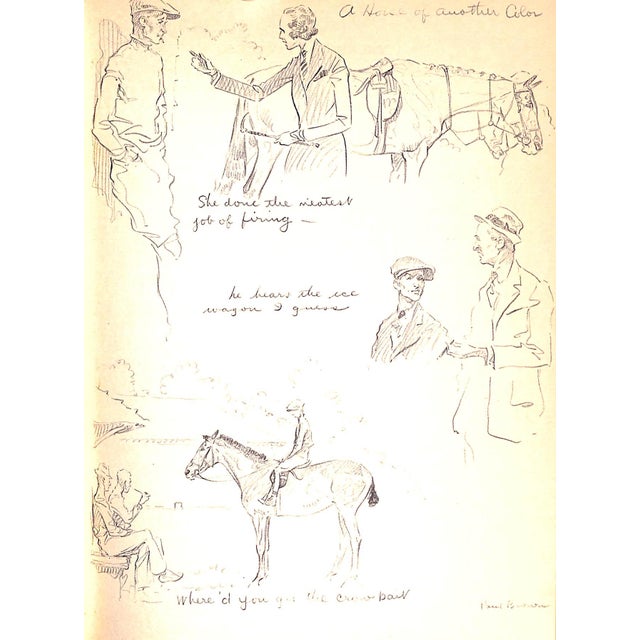 A Horse of another Color
She done the neatest
job of firing —
he hears the ice
wagon I guess
Where'd you get the crow bait
Paul Brown